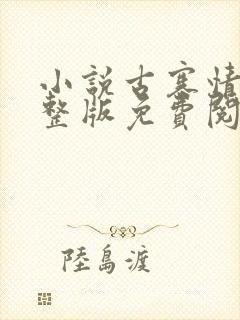 小說古寒情
整版免費閱
陸島渡